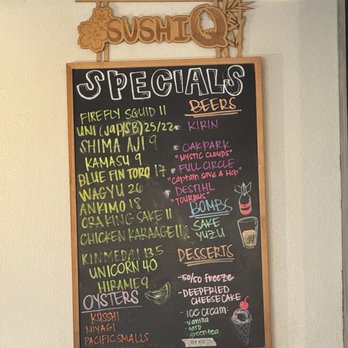 SUSHI Q
SPECIALS
FIREFLY SQUID 11
UNI (JAP/SB) 25/22
SHIMA AJI 9
KAMASU 9
BLUE FIN TORO 17
WAGYU 20
ANKIMO 18
ORA KING SAKE 11
CHICKEN KARAAGE 11
KINMEDAI 13.5
UNICORN 40
HIRAME 9
OYSTERS
KUSSHI
MIYAGI
PACIFIC SMALLS
BEERS
KIRIN
OAKPARK
"MYSTIC CLOUDS"
FULL CIRCLE
"Captain Save A Hop"
DESTIHL
"TOURBUS"
BOMBS
SAKE
YUZU
DESSERTS
50/50 freeze
DEEPFRIED
CHEESECAKE
ICE CREAM:
vanilla
taro
greentea